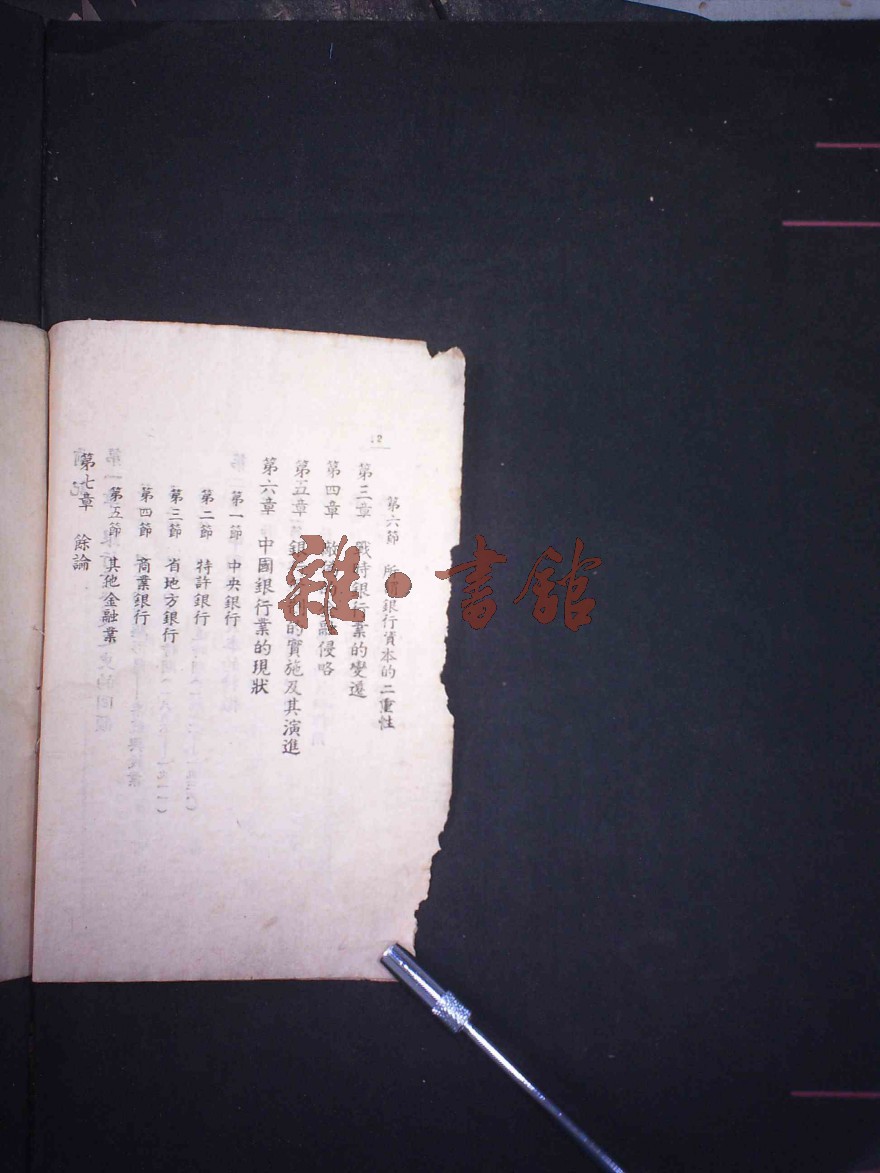 12
第六節 所 銀行資本的二重性
第三章 戰時銀行業的變遷
第四章 融侵略
第五章 銀 的實施及其演進
第六章 中國銀行業的現狀
第一節 中央銀行
第二節 特許銀行
第三節 省地方銀行
第四節 商業銀行
第五節 其他金融業
第七章 餘論
雜·書館